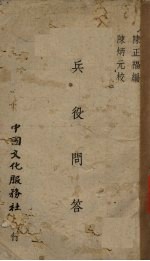 陳正楊編
陳炳元校
兵役問答
中國文化服務社印行